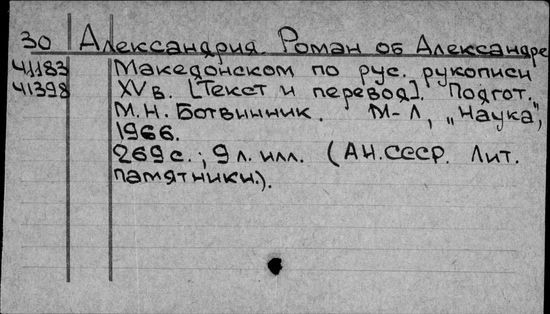 30 Александрия. Роман об Александре
41183 Македонском по рус. рукописи
41398 XV в. [Текст и перевод]. Подгот.
М.Н. Ботвинник. М-Л, „Наука",
1966.
269 с.; 9 л. илл. (АН.СССР. Лит.
памятники.).